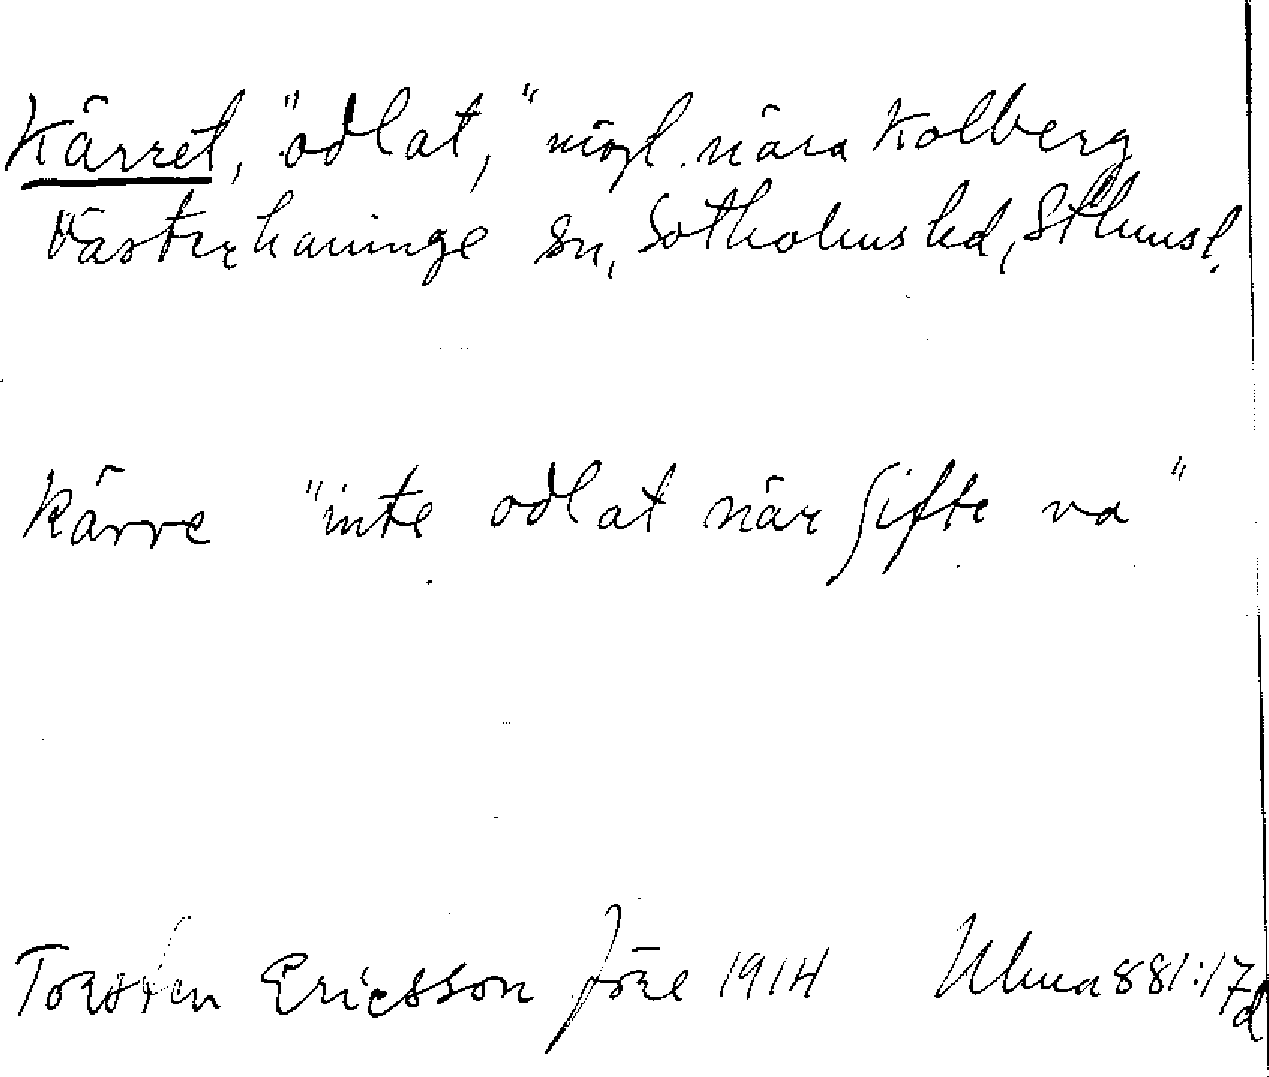 Kärret, "odlat," mögl. nära Kolberg
Västerhaninge sn, Sotholms hd, Sthmsl.
Kärre "inte odlat när Sifte va"
Torsten Ericsson före 1914 Ulma 881:17d